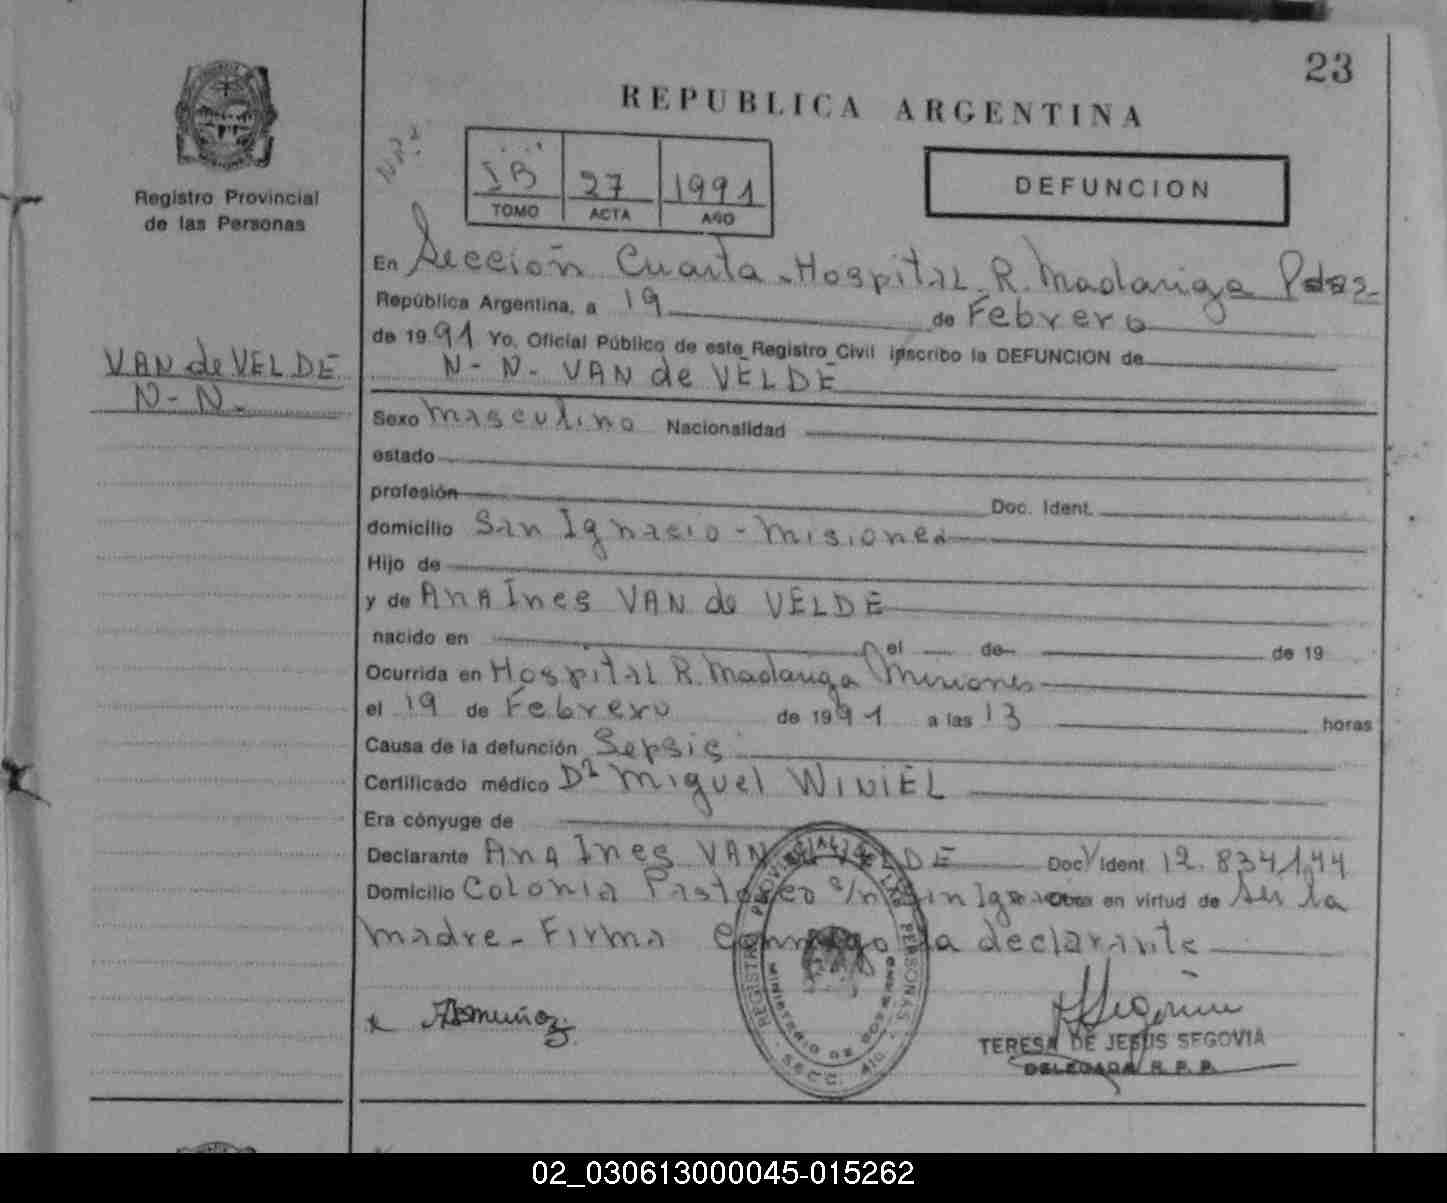 23
REPUBLICA ARGENTINA
Registro Provincial
de las Personas
27 1991
TOMO ACTA AÑO
DEFUNCION
En Sección Cuarta - Hospital R. Madariaga Pdas-
República Argentina, a 19 de Febrero
de 1991 Yo, Oficial Público de este Registro Civil inscribo la DEFUNCION de
N-N- VAN de VELDE
VAN de VELDE
N-N.
Sexo masculino Nacionalidad
estado
profesión Doc. Ident.
domicilio San Ignacio - Misiones
Hijo de
y de Ana Ines VAN de VELDE
nacido en el de de 19
Ocurrida en Hospital R. Madariaga Misiones
el 19 de Febrero de 1991 a las 13 horas
Causa de la defunción Sepsis
Certificado médico Dr Miguel WINIEL
Era cónyuge de
Declarante Ana Ines VAN de VELDE Doc. Ident. 12.834.144
Domicilio Colonia s/n San Ignacio Obra en virtud de ser la
madre - Firma conmigo la declarante
REGISTRO PROVINCIAL DE LAS PERSONAS
MINISTERIO DE GOBIERNO
TERESA DE JESUS SEGOVIA
DELEGADA R. P. P.
02_030613000045-015262